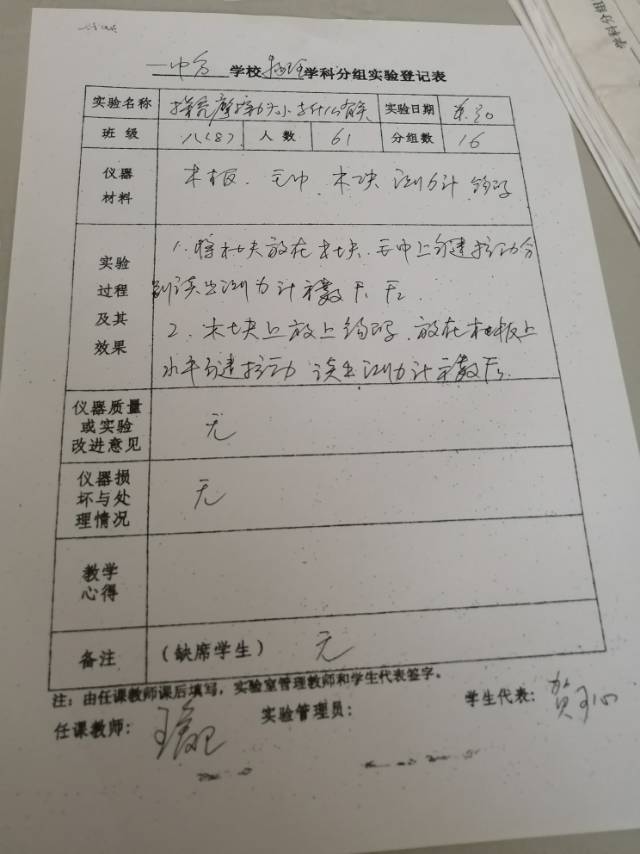 一中分 学校 物理 学科分组实验登记表
实验名称 探究摩擦力大小与什么有关 实验日期
班 级 八(8) 人 数 61 分组数 16
仪器
材料
木板、毛巾、木块 测力计 钩码
实验
过程
及其
效果
1. 将木块放在木块、毛巾上匀速拉动分
别读出测力计示数 F₁ F₂
2. 木块上放上钩码、放在木板上
水平匀速拉动 读出测力计示数F₃.
仪器质量
或实验
改进意见
无
仪器损
坏与处
理情况
无
教学
心得
备注 (缺席学生) 无
注：由任课教师课后填写，实验室管理教师和学生代表签字。
任课教师： 实验管理员： 学生代表：
学科分组